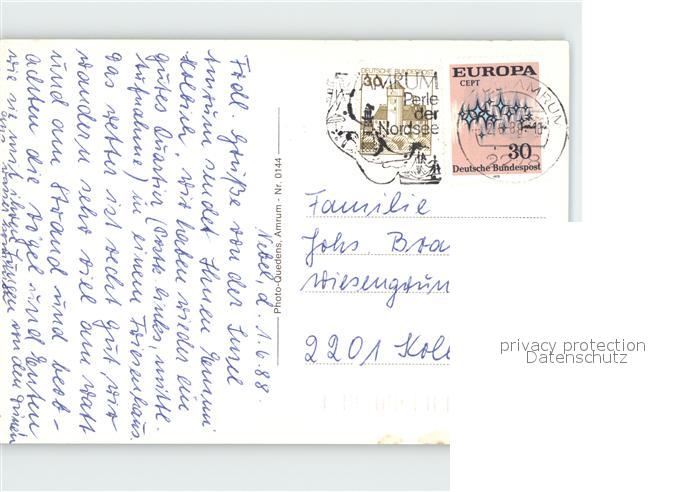 Nebel, d. 1.6.88.
Frdl. Grüße von der Insel
Amrum sendet Ihnen Henni
Wir haben wieder ein
gutes Quartier (Karte links, mittl.
Aufnahme) in einem Friesenhaus.
Das Wetter ist recht gut, wir
wandern sehr viel am Watt
und am Strand und beob-
achten die Vögel und Enten
wie sie mit ihren Jungen von den
Photo-Quedens, Amrum - Nr. 0144
DEUTSCHE BUNDESPOST
30
AMRUM
Perle
der
Nordsee
EUROPA
CEPT
30
Deutsche Bundespost
AMRUM
Familie
Johs. Bra
Wiesengrun
2201 Koll
privacy protection
Datenschutz